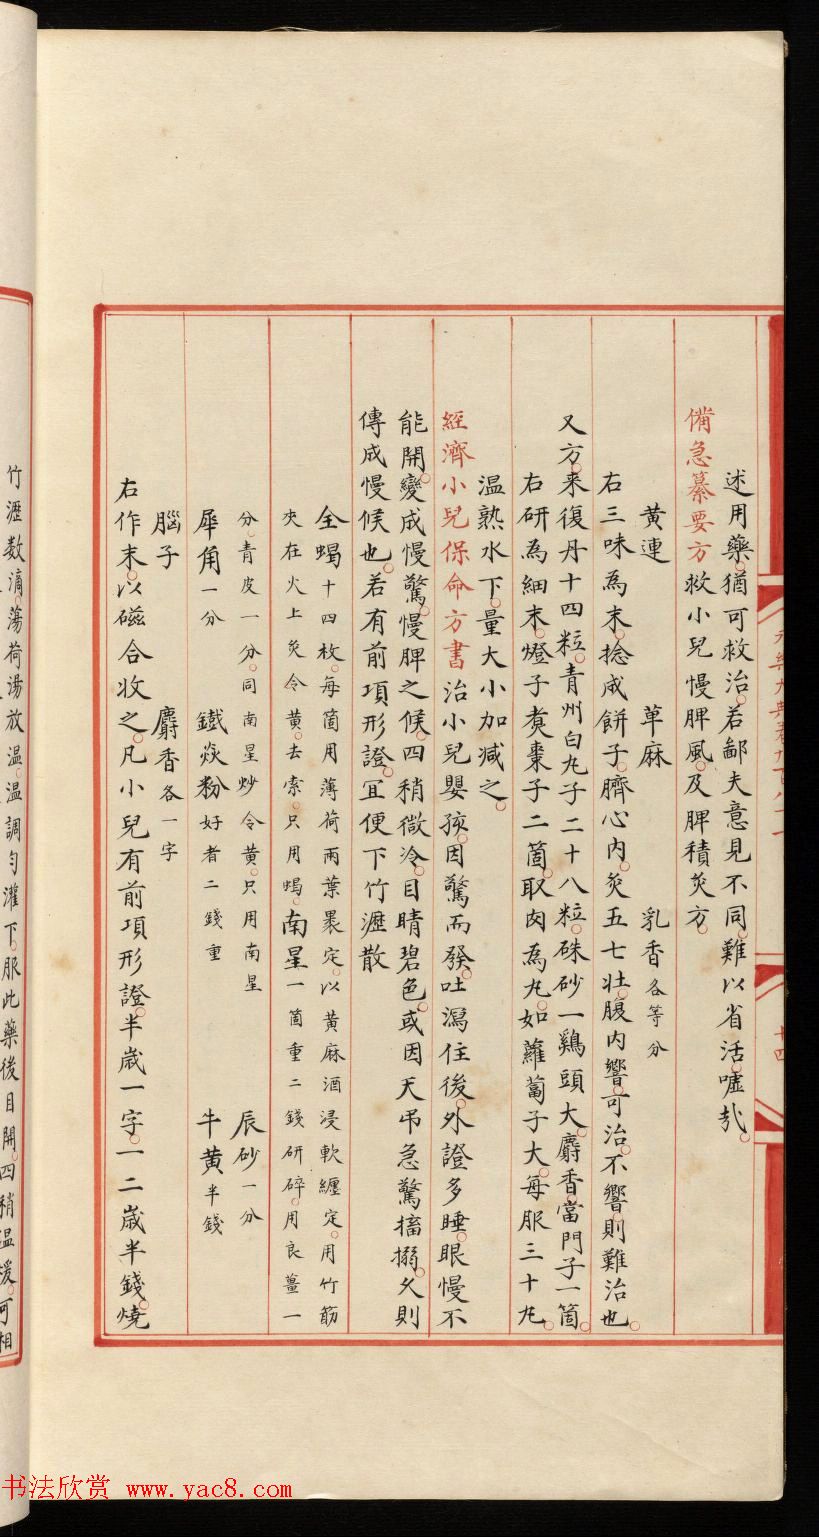 述用藥。猶可救治。若鄙夫意見不同。難以省活。噓㢤。
備急纂要方救小兒慢脾風。及脾積灸方。
黃連 草麻 乳香各等分
右三味為末。捻成餅子。臍心内。灸五七壯。腹内響。可治。不響。則難治也。
又方。来復丹十四粒。青州白丸子二十八粒。硃砂一鷄頭大。麝香當門子一箇。
右研為細末。燈子煑棗子二箇。取肉為丸。如蘿蔔子大。每服三十丸。
温熟水下。量大小加減之。
經濟小兒保命方書治小兒嬰孩。因驚而發。吐瀉住後。外證多睡。眼慢不
能開。變成慢驚。慢脾之候。四稍微冷。目睛碧色。或因天吊急驚搐搦。久則
傳成慢候也。若有前項形證。宜便下竹瀝散
全蝎十四枚。每箇用薄荷兩葉裹定。以黄麻酒浸軟纏定。用竹筯
夾在火上炙令黄。去索。只用蝎。南星一箇重二錢研碎。用良薑一
分。青皮一分。同南星炒令黄。只用南星 辰砂一分
犀角一分 鐵焰粉好者二錢重 牛黄半錢
腦子 麝香各一字
右作末。以磁合收之。凡小兒有前項形證。半歲一字。一二歲半錢。燒
竹瀝数滴。蕩荷湯放温。温調勻灌下。服此藥後目開。四稍温煖。可相
十四
书法欣赏 www.yac8.com